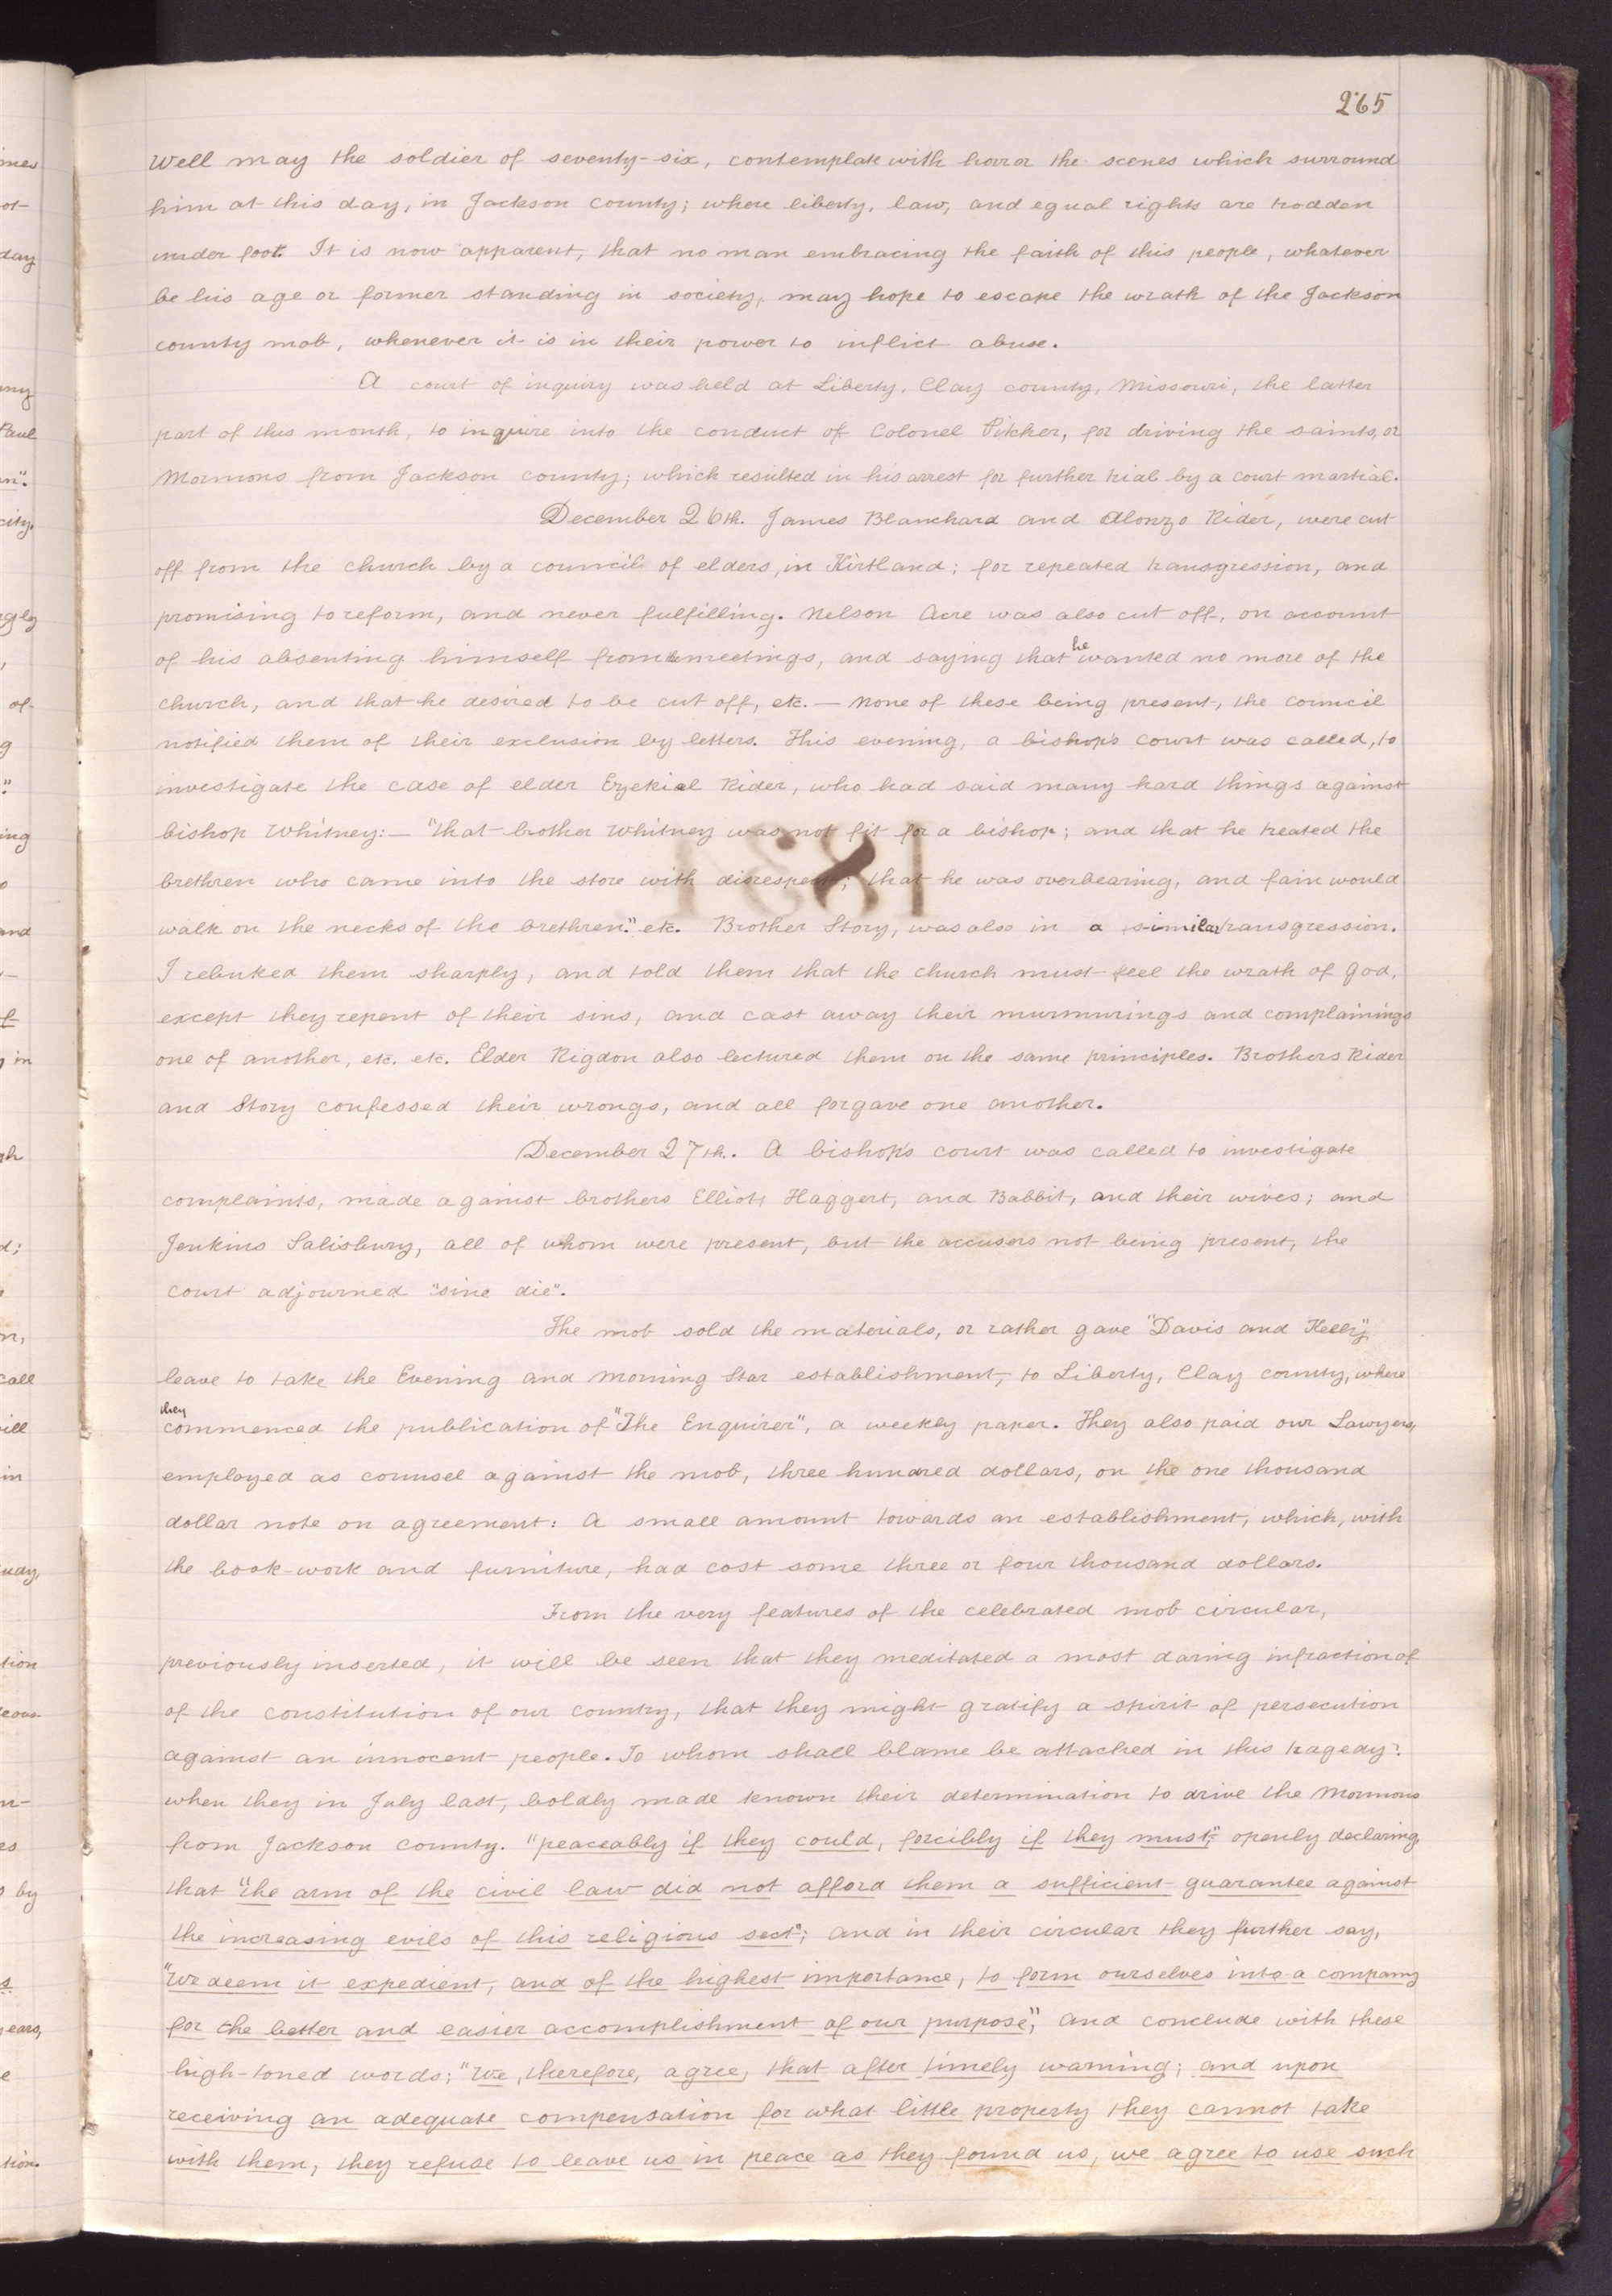 265
Well may the soldier of seventy-six, contemplate with horror the scenes which surround
him at this day, in Jackson county; where liberty, law, and equal rights are trodden
under foot. It is now apparent, that no man embracing the faith of this people, whatever
be his age or former standing in society, may hope to escape the wrath of the Jackson
county mob, whenever it is in their power to inflict abuse.
A court of inquiry was held at Liberty, Clay county, Missouri, the latter
part of this month, to inquire into the conduct of Colonel Pitcher, for driving the saints, or
Mormons from Jackson county; which resulted in his arrest for further trial by a court martial.
December 26th. James Blanchard and Alonzo Rider, were cut
off from the church by a council of elders, in Kirtland; for repeated transgression, and
promising to reform, and never fulfilling. Nelson Acre was also cut off, on account
of his absenting himself from the meetings, and saying that he wanted no more of the
church, and that he desired to be cut off, etc. — None of these being present, the council
notified them of their exclusion by letters. This evening, a bishop's court was called, to
investigate the case of elder Ezekial Rider, who had said many hard things against
bishop Whitney:— "that brother Whitney was not fit for a bishop; and that he treated the
brethren who came into the store with disrespect; that he was overbearing, and fain would
walk on the necks of the brethren." etc. Brother Story, was also in a similar transgression.
I rebuked them sharply, and told them that the church must feel the wrath of God,
except they repent of their sins, and cast away their murmurings and complainings
one of another, etc. etc. Elder Rigdon also lectured them on the same principles. Brothers Rider
and Story confessed their wrongs, and all forgave one another.
December 27th. A bishop's court was called to investigate
complaints, made against brothers Elliott, Haggert, and Babbit, and their wives; and
Jenkins Salisbury, all of whom were present, but the accusers not being present, the
court adjourned "sine die".
The mob sold the materials, or rather gave "Davis and Kelly",
leave to take the Evening and Morning Star establishment, to Liberty, Clay county, where
they
commenced the publication of "The Enquirer", a weekly paper. They also paid our Lawyers,
employed as counsel against the mob, three hundred dollars, on the one thousand
dollar note on agreement: A small amount towards an establishment, which, with
the book-work and furniture, had cost some three or four thousand dollars.
From the very features of the celebrated mob circular,
previously inserted, it will be seen that they meditated a most daring infraction of
of the constitution of our country, that they might gratify a spirit of persecution
against an innocent people. To whom shall blame be attached in this tragedy?
when they in July last, boldly made known their determination to drive the Mormons
from Jackson county. "peaceably if they could, forcibly if they must"; openly declaring,
that "the arm of the civil law did not afford them a sufficient guarantee against
the increasing evils of this religious sect"; and in their circular they further say,
"We deem it expedient, and of the highest importance, to form ourselves into a company
for the better and easier accomplishment of our purpose", and conclude with these
high-toned words; "We, therefore, agree, that after timely warning; and upon
receiving an adequate compensation for what little property they cannot take
with them, they refuse to leave us in peace as they found us, we agree to use such